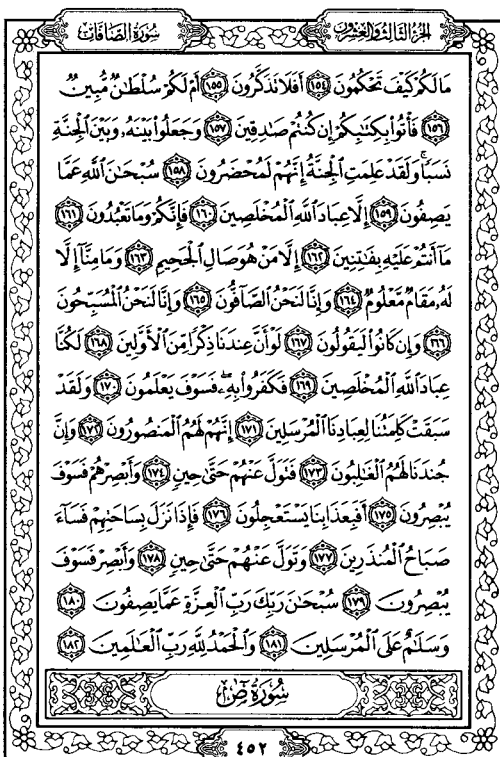 سُورَةُ الصَّافَّاتِ
الجُزْءُ الثَّالِثُ وَالعِشْرُونَ
مَا لَكُمْ كَيْفَ تَحْكُمُونَ ﴿١٥٤﴾ أَفَلَا تَذَكَّرُونَ ﴿١٥٥﴾ أَمْ لَكُمْ سُلْطَٰنٌ مُّبِينٌ
﴿١٥٦﴾ فَأْتُوا۟ بِكِتَٰبِكُمْ إِن كُنتُمْ صَٰدِقِينَ ﴿١٥٧﴾ وَجَعَلُوا۟ بَيْنَهُۥ وَبَيْنَ ٱلْجِنَّةِ
نَسَبًا ۚ وَلَقَدْ عَلِمَتِ ٱلْجِنَّةُ إِنَّهُمْ لَمُحْضَرُونَ ﴿١٥٨﴾ سُبْحَٰنَ ٱللَّهِ عَمَّا
يَصِفُونَ ﴿١٥٩﴾ إِلَّا عِبَادَ ٱللَّهِ ٱلْمُخْلَصِينَ ﴿١٦٠﴾ فَإِنَّكُمْ وَمَا تَعْبُدُونَ ﴿١٦١﴾
مَآ أَنتُمْ عَلَيْهِ بِفَٰتِنِينَ ﴿١٦٢﴾ إِلَّا مَنْ هُوَ صَالِ ٱلْجَحِيمِ ﴿١٦٣﴾ وَمَا مِنَّآ إِلَّا
لَهُۥ مَقَامٌ مَّعْلُومٌ ﴿١٦٤﴾ وَإِنَّا لَنَحْنُ ٱلصَّآفُّونَ ﴿١٦٥﴾ وَإِنَّا لَنَحْنُ ٱلْمُسَبِّحُونَ
﴿١٦٦﴾ وَإِن كَانُوا۟ لَيَقُولُونَ ﴿١٦٧﴾ لَوْ أَنَّ عِندَنَا ذِكْرًا مِّنَ ٱلْأَوَّلِينَ ﴿١٦٨﴾ لَكُنَّا
عِبَادَ ٱللَّهِ ٱلْمُخْلَصِينَ ﴿١٦٩﴾ فَكَفَرُوا۟ بِهِۦ ۖ فَسَوْفَ يَعْلَمُونَ ﴿١٧٠﴾ وَلَقَدْ
سَبَقَتْ كَلِمَتُنَا لِعِبَادِنَا ٱلْمُرْسَلِينَ ﴿١٧١﴾ إِنَّهُمْ لَهُمُ ٱلْمَنصُورُونَ ﴿١٧٢﴾ وَإِنَّ
جُندَنَا لَهُمُ ٱلْغَٰلِبُونَ ﴿١٧٣﴾ فَتَوَلَّ عَنْهُمْ حَتَّىٰ حِينٍ ﴿١٧٤﴾ وَأَبْصِرْهُمْ فَسَوْفَ
يُبْصِرُونَ ﴿١٧٥﴾ أَفَبِعَذَابِنَا يَسْتَعْجِلُونَ ﴿١٧٦﴾ فَإِذَا نَزَلَ بِسَاحَتِهِمْ فَسَآءَ
صَبَاحُ ٱلْمُنذَرِينَ ﴿١٧٧﴾ وَتَوَلَّ عَنْهُمْ حَتَّىٰ حِينٍ ﴿١٧٨﴾ وَأَبْصِرْ فَسَوْفَ
يُبْصِرُونَ ﴿١٧٩﴾ سُبْحَٰنَ رَبِّكَ رَبِّ ٱلْعِزَّةِ عَمَّا يَصِفُونَ ﴿١٨٠﴾
وَسَلَٰمٌ عَلَى ٱلْمُرْسَلِينَ ﴿١٨١﴾ وَٱلْحَمْدُ لِلَّهِ رَبِّ ٱلْعَٰلَمِينَ ﴿١٨٢﴾
سُورَةُ صٓ
٤٥٢